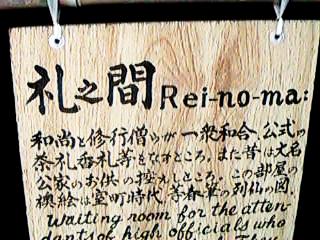 礼之間 Rei-no-ma:
和尚と修行僧らが一衆和合、公式の
茶礼香礼等となすところ。また昔は大名
公家のお供の控えしところ。この部屋の
襖絵は室町時代、等春筆の別仙の図。
Waiting room for the atten-
dants of high officials who